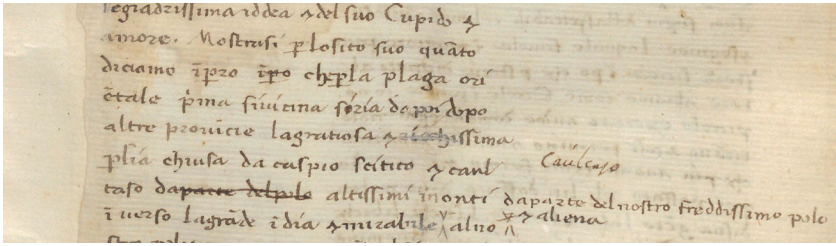 legiadrissima iddea ⁊ del suo Cupido ⁊
amore. Mostrasi ꝑ losito suo quāto
diciamo īpero ī̶p̶o̶ cheꝑla plaga ori
ētale p̄ma sivicina soria dapoi dopo
altre provīcie lagratiosa ⁊ richissima
ꝑsia chiusa da caspio scitico ⁊ caul Caulcaso
caso dap̶a̶r̶t̶e̶ ̶d̶e̶l̶p̶o̶l̶o̶ altissimi monti daparte del nostro freddissimo polo
ī verso lagrāde īdia ⁊ mirabile alno ⁊ aliena